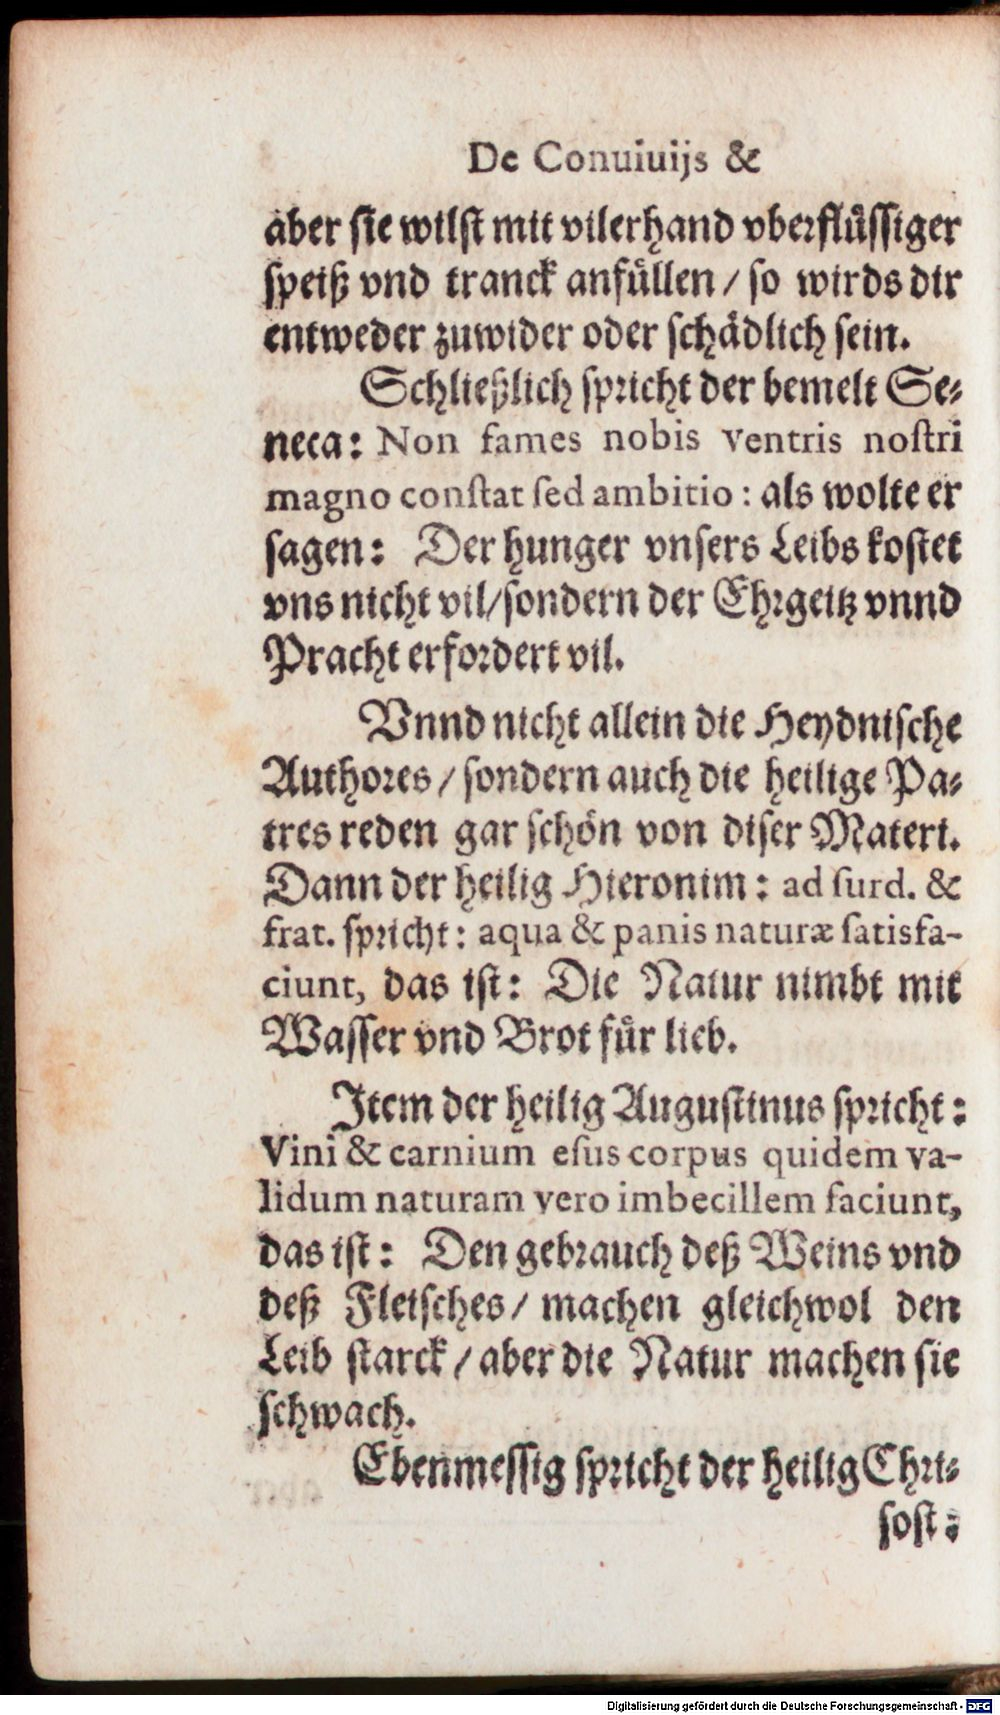 De Conuiuijs &
aber sie wilst mit vilerhand vberflüssiger
speiß vnd tranck anfüllen / so wirds dir
entweder zuwider oder schädlich sein.
Schließlich spricht der bemelt Se-
neca: Non fames nobis ventris nostri
magno constat sed ambitio : als wolte er
sagen: Der hunger vnsers Leibs kostet
vns nicht vil/sondern der Ehrgeitz vnnd
Pracht erfordert vil.
Vnnd nicht allein die Heydnische
Authores / sondern auch die heilige Pa-
tres reden gar schön von diser Materi.
Dann der heilig Hieronim: ad surd. &
frat. spricht: aqua & panis naturæ satisfa-
ciunt, das ist: Die Natur nimbt mit
Wasser vnd Brot für lieb.
Item der heilig Augustinus spricht:
Vini & carnium esus corpus quidem va-
lidum naturam vero imbecillem faciunt,
das ist: Den gebrauch deß Weins vnd
deß Fleisches / machen gleichwol den
Leib starck / aber die Natur machen sie
schwach.
Ebenmessig spricht der heilig Chri-
sost:
Digitalisierung gefördert durch die Deutsche Forschungsgemeinschaft - DFG